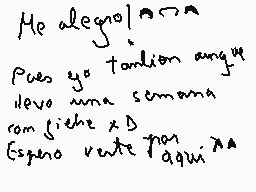 Me alegro! ^o^
Pues yo tanbion aunque
llevo una semana
con fiebre xD
Espero verte por
aqui ^^